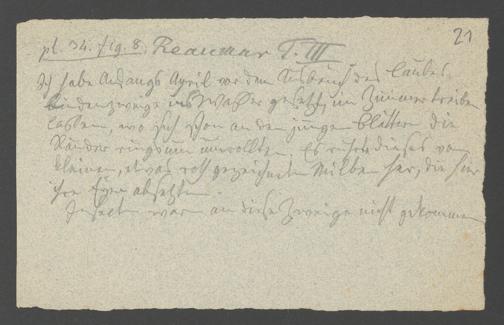 21
pl. 34. fig. 8. Reaumur T. III
Ich habe Anfangs April vor dem Ausbruch des Laubes
Lindenzweige ins Wasser gesetzt, im Zimmer treiben
lassen, wo sich schon an den jungen Blättern die
Ränder ringsum umrollten. Es rührt dieses von
kleinen, etwas roth gezeichneten Milben her, die hier
ihre Eyer absetzten.
Insecten waren an diese Zweige nicht gekommen